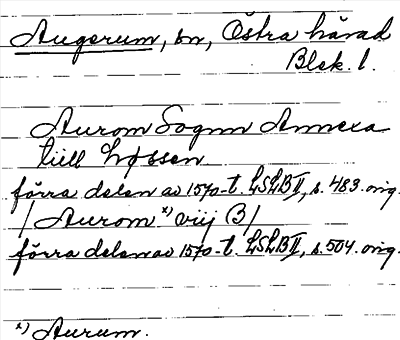 Augerum, sn, Östra härad
Blek. l.
Aurom Sognn Annexa
tiill Løssen
förra delen av 1570-t. LSLB II, s. 483. orig.
/ Aurom x) viij B /
förra delen av 1570-t. LSLB II, s. 504. orig.
x) Aurum.